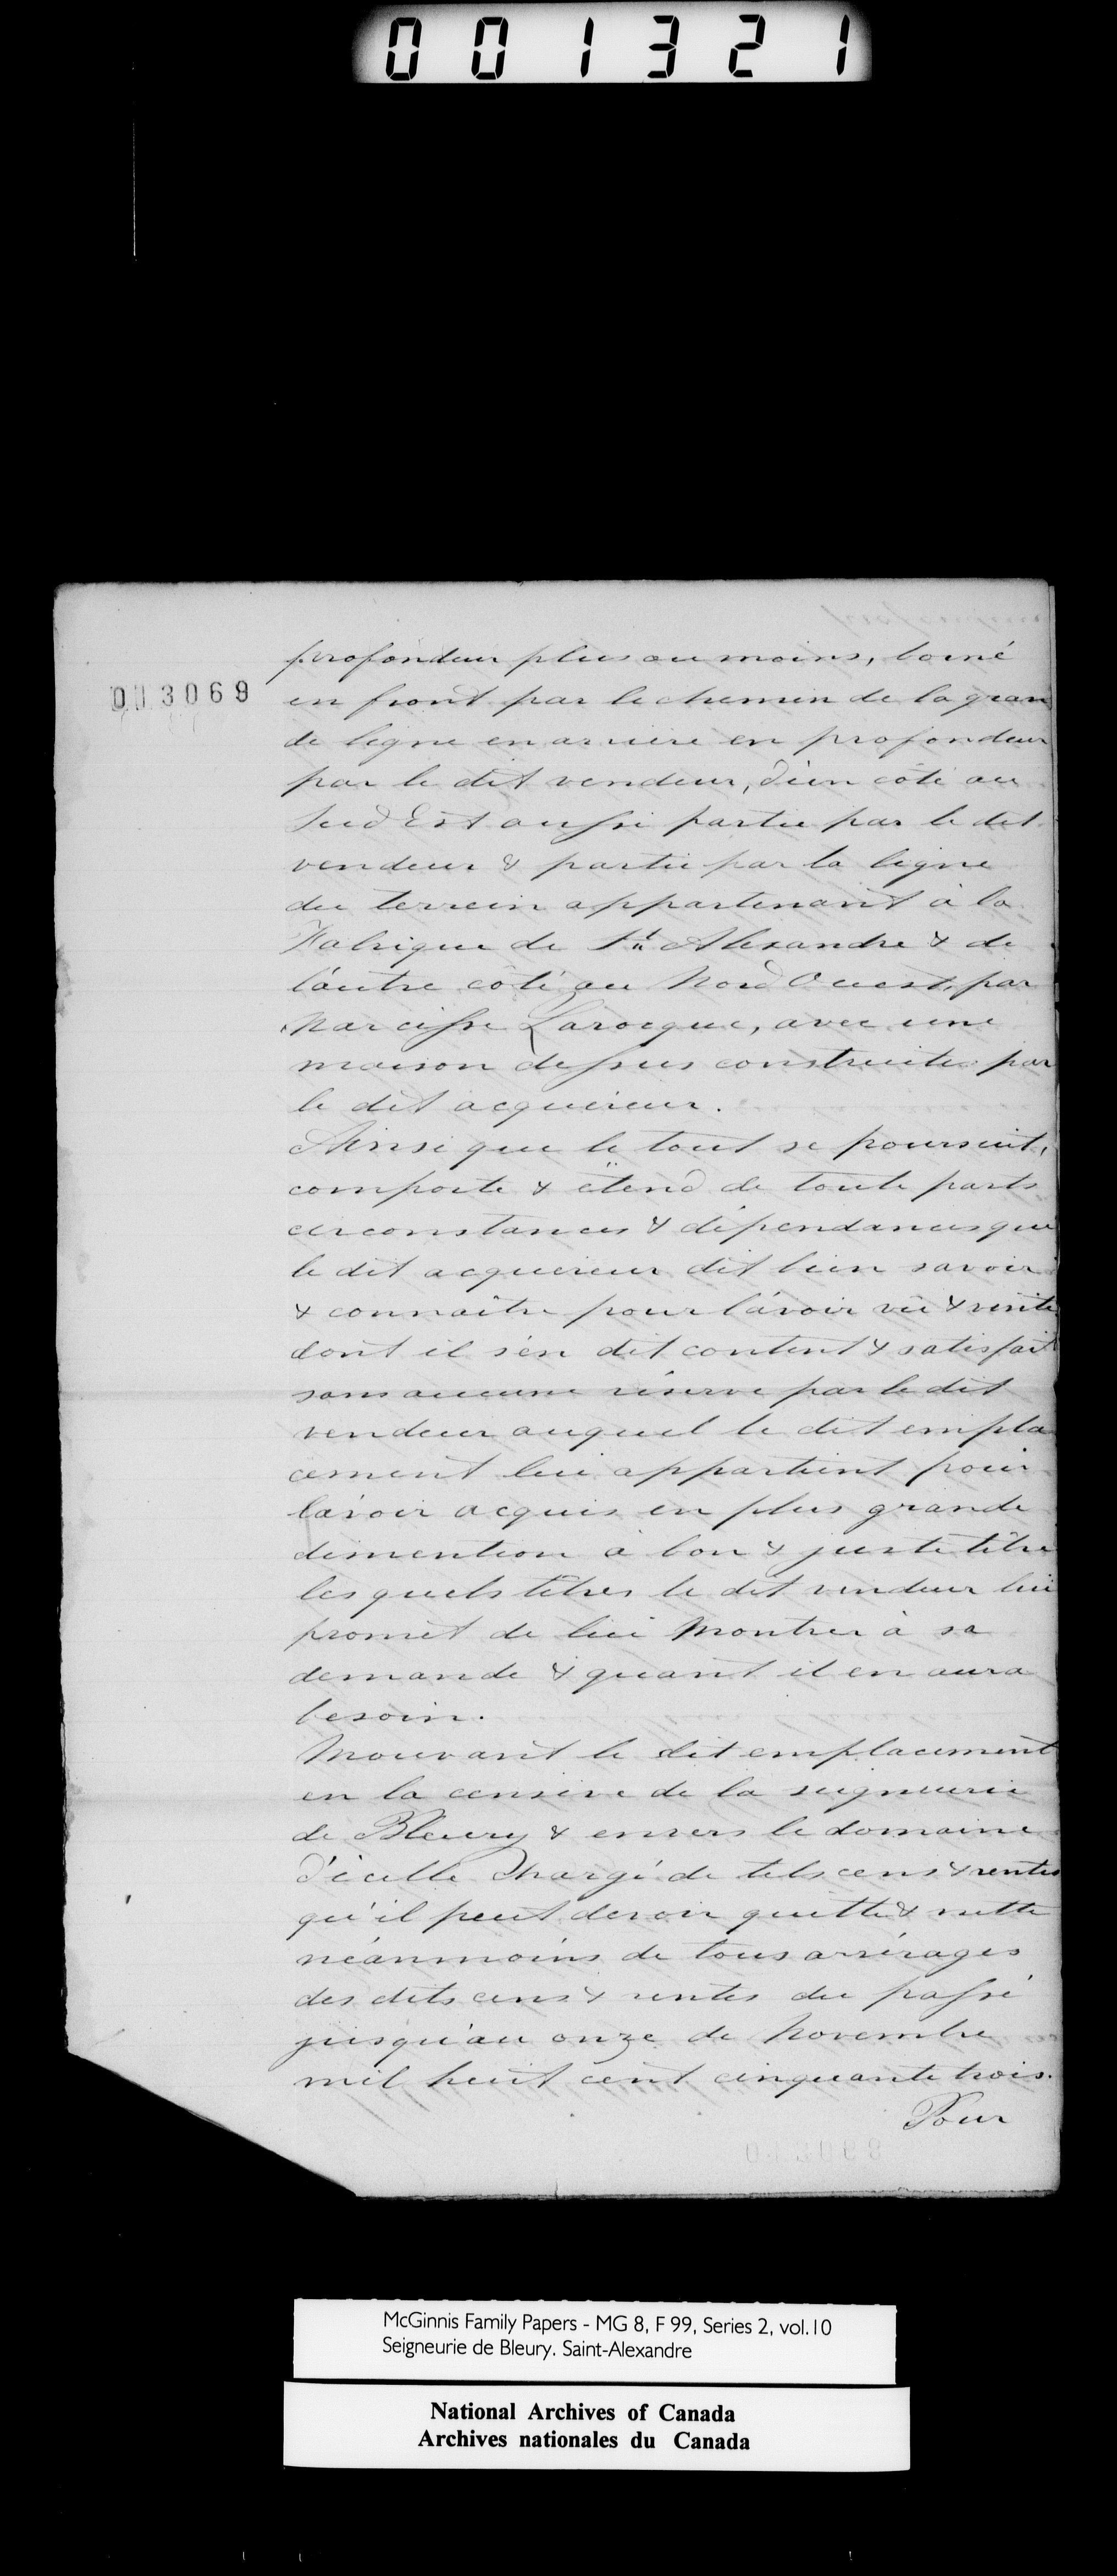 001321
003069
profondeur plus ou moins, borné
en front par le chemin de la gran
de ligne en arriere en profondeur
par le dit vendeur, d'un côté au
Sud Est aussi partie par le dit
vendeur & partie par la ligne
du terrein appartenant à la
Fabrique de St Alexandre & de
l'autre côté au Nord Ouest, par
Narcisse Larocque, avec une
maison dessus construite par
le dit acquereur.
Ainsi que le tout se poursuit,
comporte & étend de toute parts
circonstances & dépendances que
le dit acquereur dit bien savoir
& connaître pour l'avoir vû & visité
dont il s'en dit content & satisfait
sans aucune réserve par le dit
vendeur auquel le dit empla
cement lui appartient pour
l'avoir acquis en plus grande
dimention à bon & juste titre
les quels titres le dit vendeur lui
promet de lui Montrer à sa
demande & quant il en aura
besoin.
Mouvant le dit emplacement
en la censive de la seigneurie
de Bleury & envers le domaine
d'icelle Chargé de tels cens & rentes
qu'il peut devoir quitte & nette
néanmoins de tous arrérages
des dits cens & rentes du passé
jusqu'au onze de Novembre
mil huit cent cinquante trois.
Pour
McGinnis Family Papers - MG 8, F 99, Series 2, vol.10
Seigneurie de Bleury. Saint-Alexandre
National Archives of Canada
Archives nationales du Canada